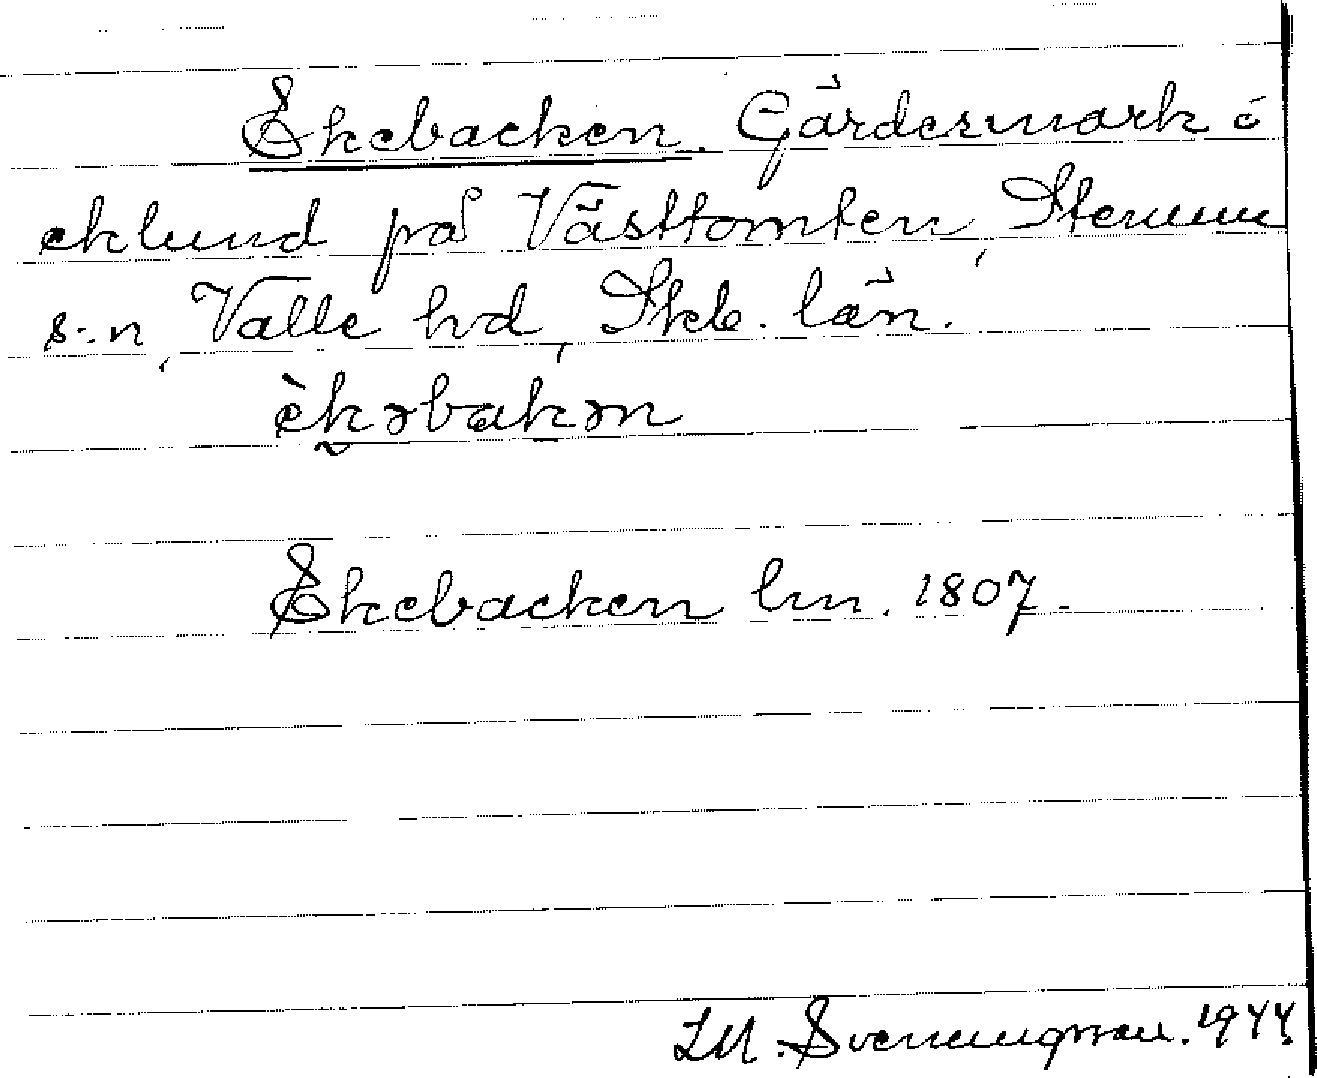 Ekebacken. Gärdesmark o
eklund på Västtomten, Stenum
s:n, Valle hd, Skb. län.
èkəbakən
Ekebacken lm. 1807.
L.M. Svenungsson. 1944.